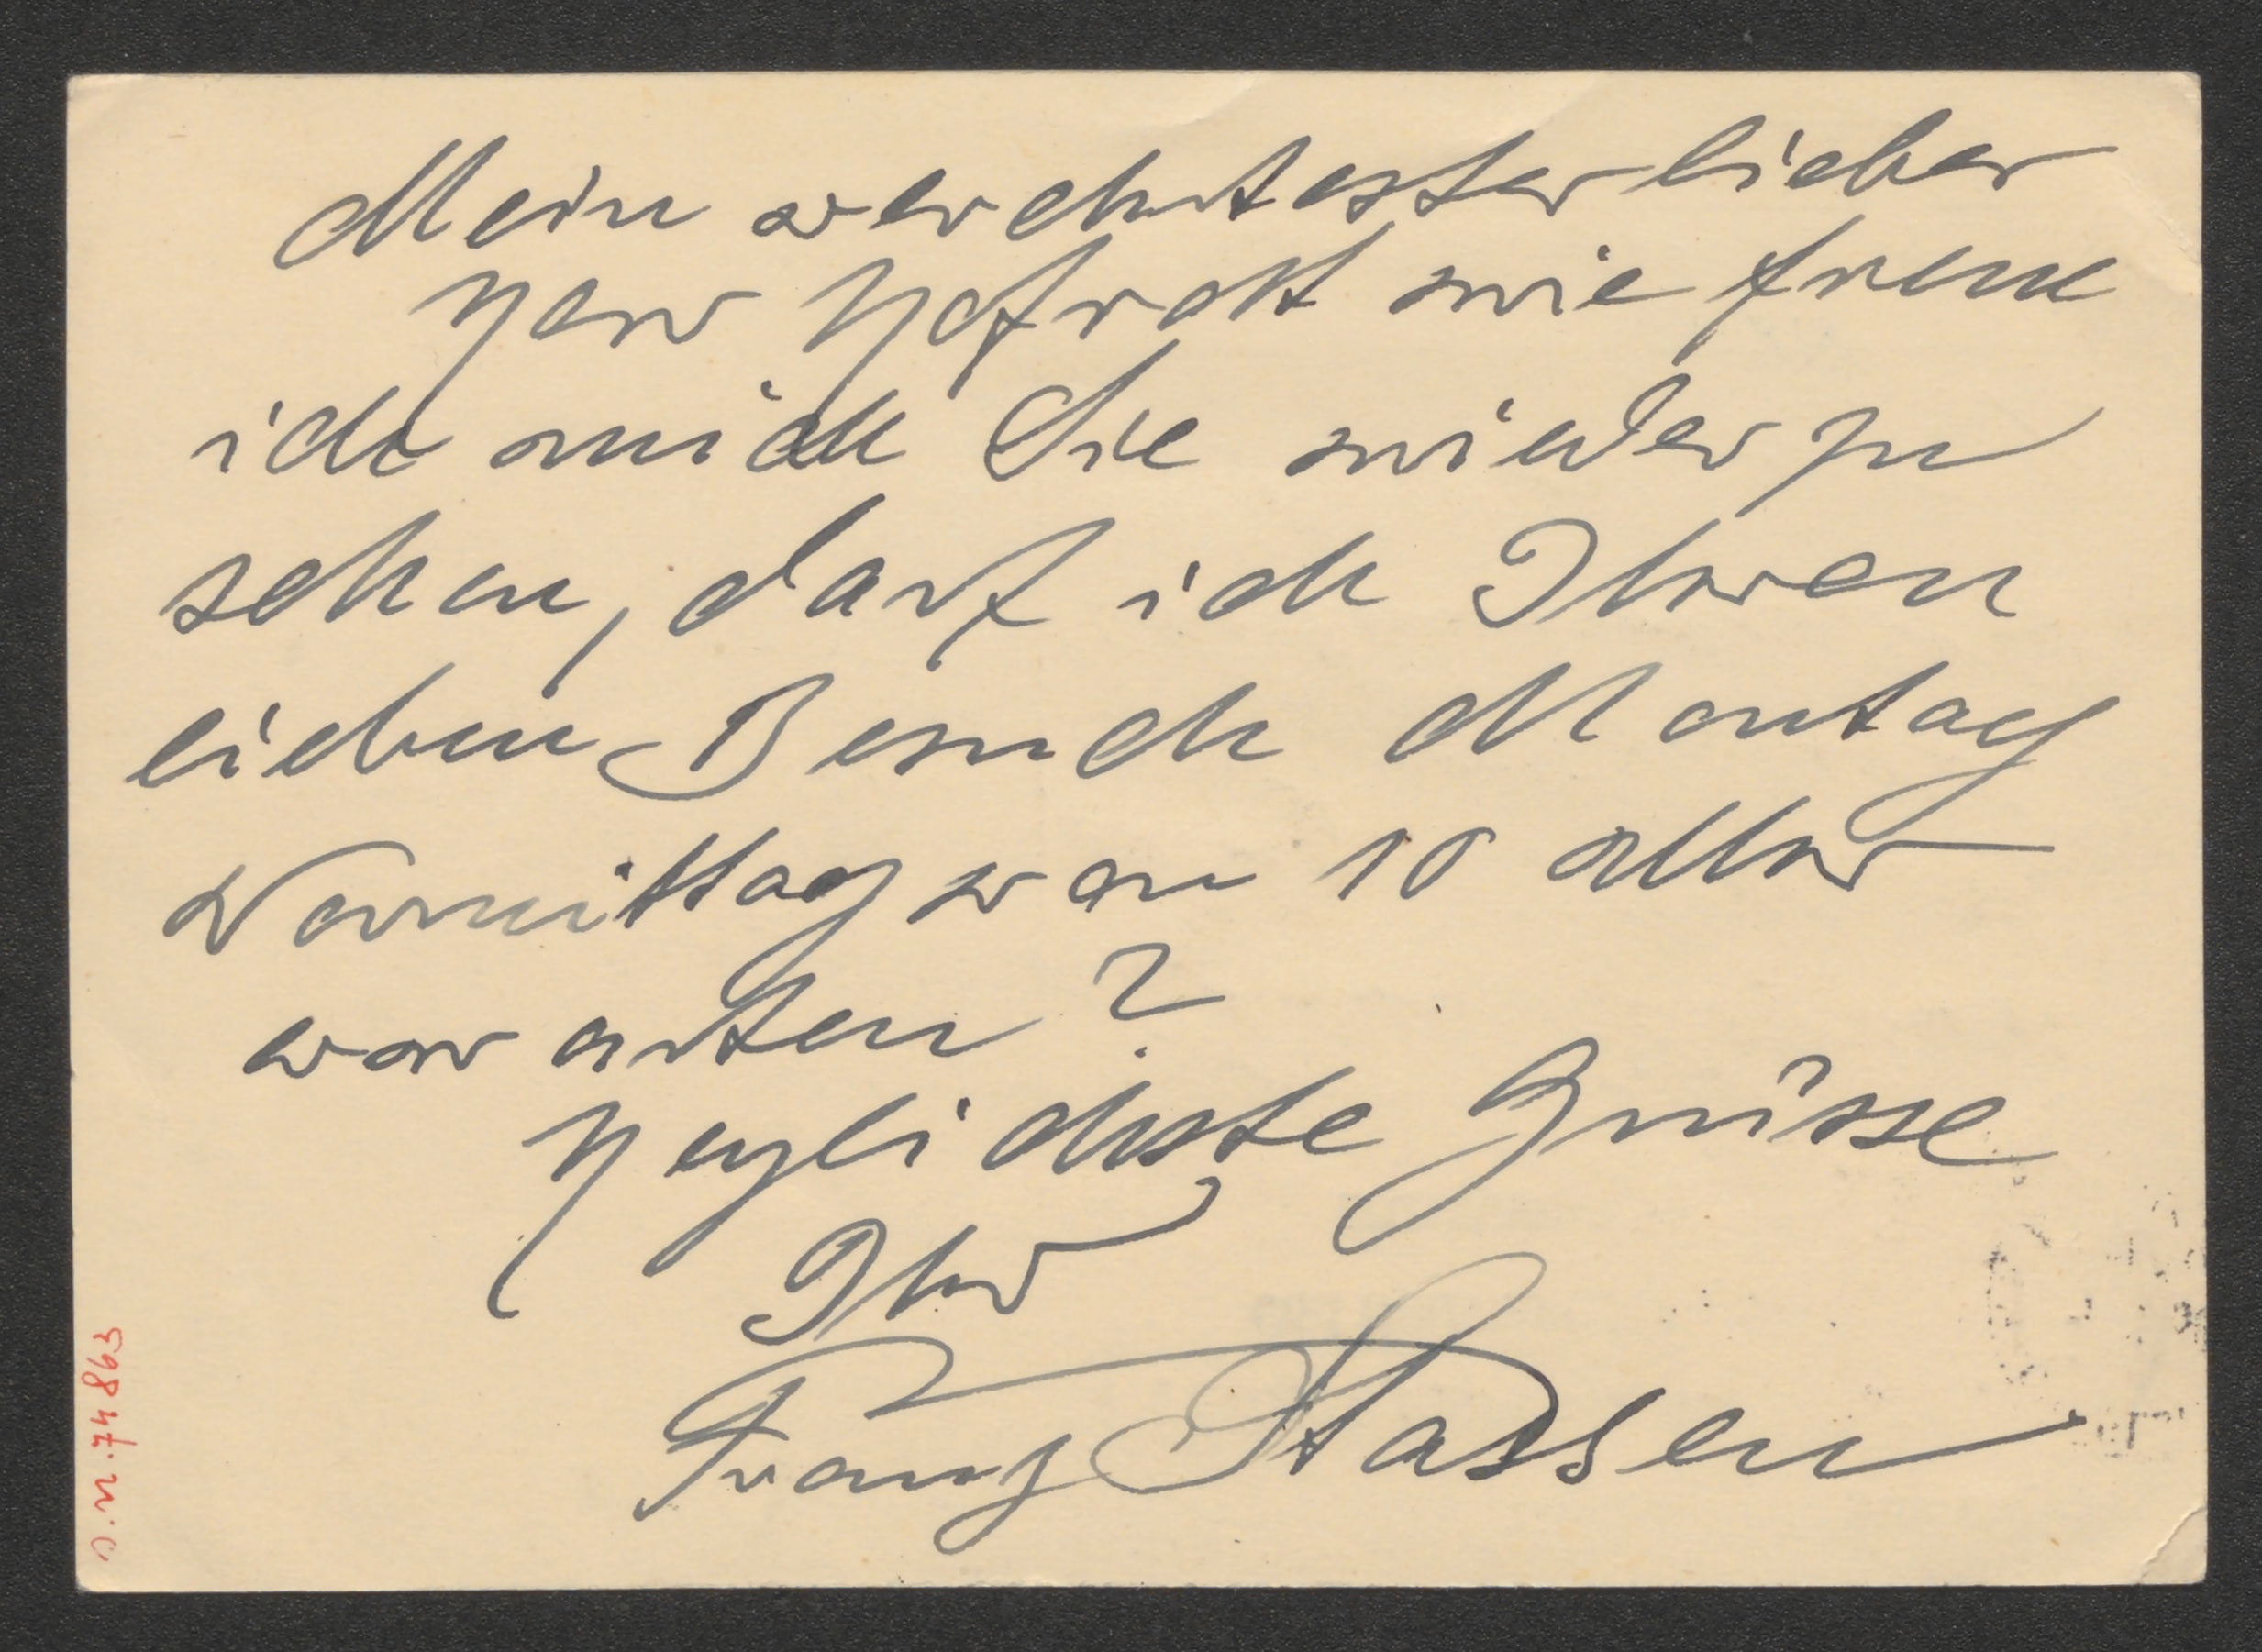 Mein verehrtester lieber
Herr Hofrat wie freue
ich mich Sie wieder zu
sehen, darf ich Ihren
lieben Besuch Montag
Vormittag von 10 Uhr
erwarten?
Herzlichste Grüsse
Ihr
Franz Stassen
a.n. 74863